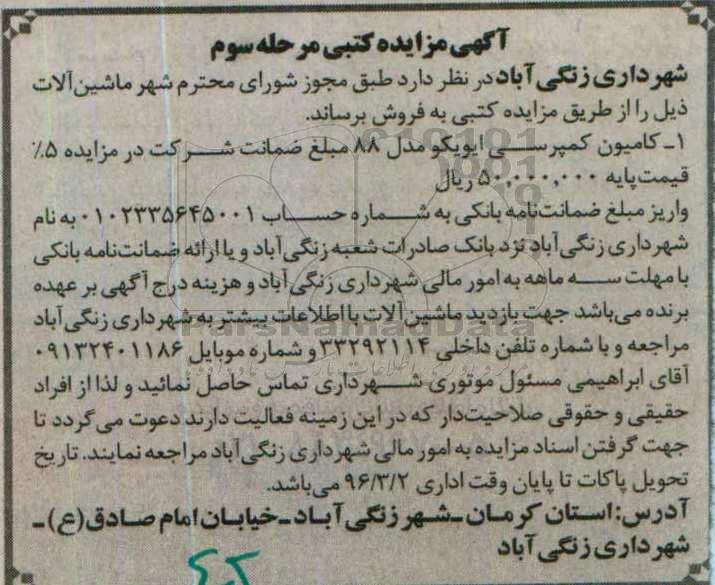 آگهی مزایده کتبی مرحله سوم
شهرداری زنگی آباد در نظر دارد طبق مجوز شورای محترم شهر ماشین‌آلات
ذیل را از طریق مزایده کتبی به فروش برساند.
۱ـ کامیون کمپرسی ایویکو مدل ۸۸ مبلغ ضمانت شرکت در مزایده ۵٪
قیمت پایه ۵۰,۰۰۰,۰۰۰ ریال
واریز مبلغ ضمانت‌نامه بانکی به شماره حساب ۰۱۰۲۳۳۵۶۴۵۰۰۱ به نام
شهرداری زنگی آباد نزد بانک صادرات شعبه زنگی آباد و یا ارائه ضمانت‌نامه بانکی
با مهلت سه ماهه به امور مالی شهرداری زنگی آباد و هزینه درج آگهی بر عهده
برنده می‌باشد جهت بازدید ماشین آلات با اطلاعات بیشتر به شهرداری زنگی آباد
مراجعه و با شماره تلفن داخلی ۳۳۲۹۲۱۱۴ و شماره موبایل ۰۹۱۳۲۴۰۱۱۸۶
آقای ابراهیمی مسئول موتوری شهرداری تماس حاصل نمائید و لذا از افراد
حقیقی و حقوقی صلاحیت‌دار که در این زمینه فعالیت دارند دعوت می‌گردد تا
جهت گرفتن اسناد مزایده به امور مالی شهرداری زنگی آباد مراجعه نمایند. تاریخ
تحویل پاکات تا پایان وقت اداری ۹۶/۳/۲ می‌باشد.
آدرس: استان کرمان ـ شهر زنگی آباد ـ خیابان امام صادق (ع) ـ
شهرداری زنگی آباد
ParsNamadData